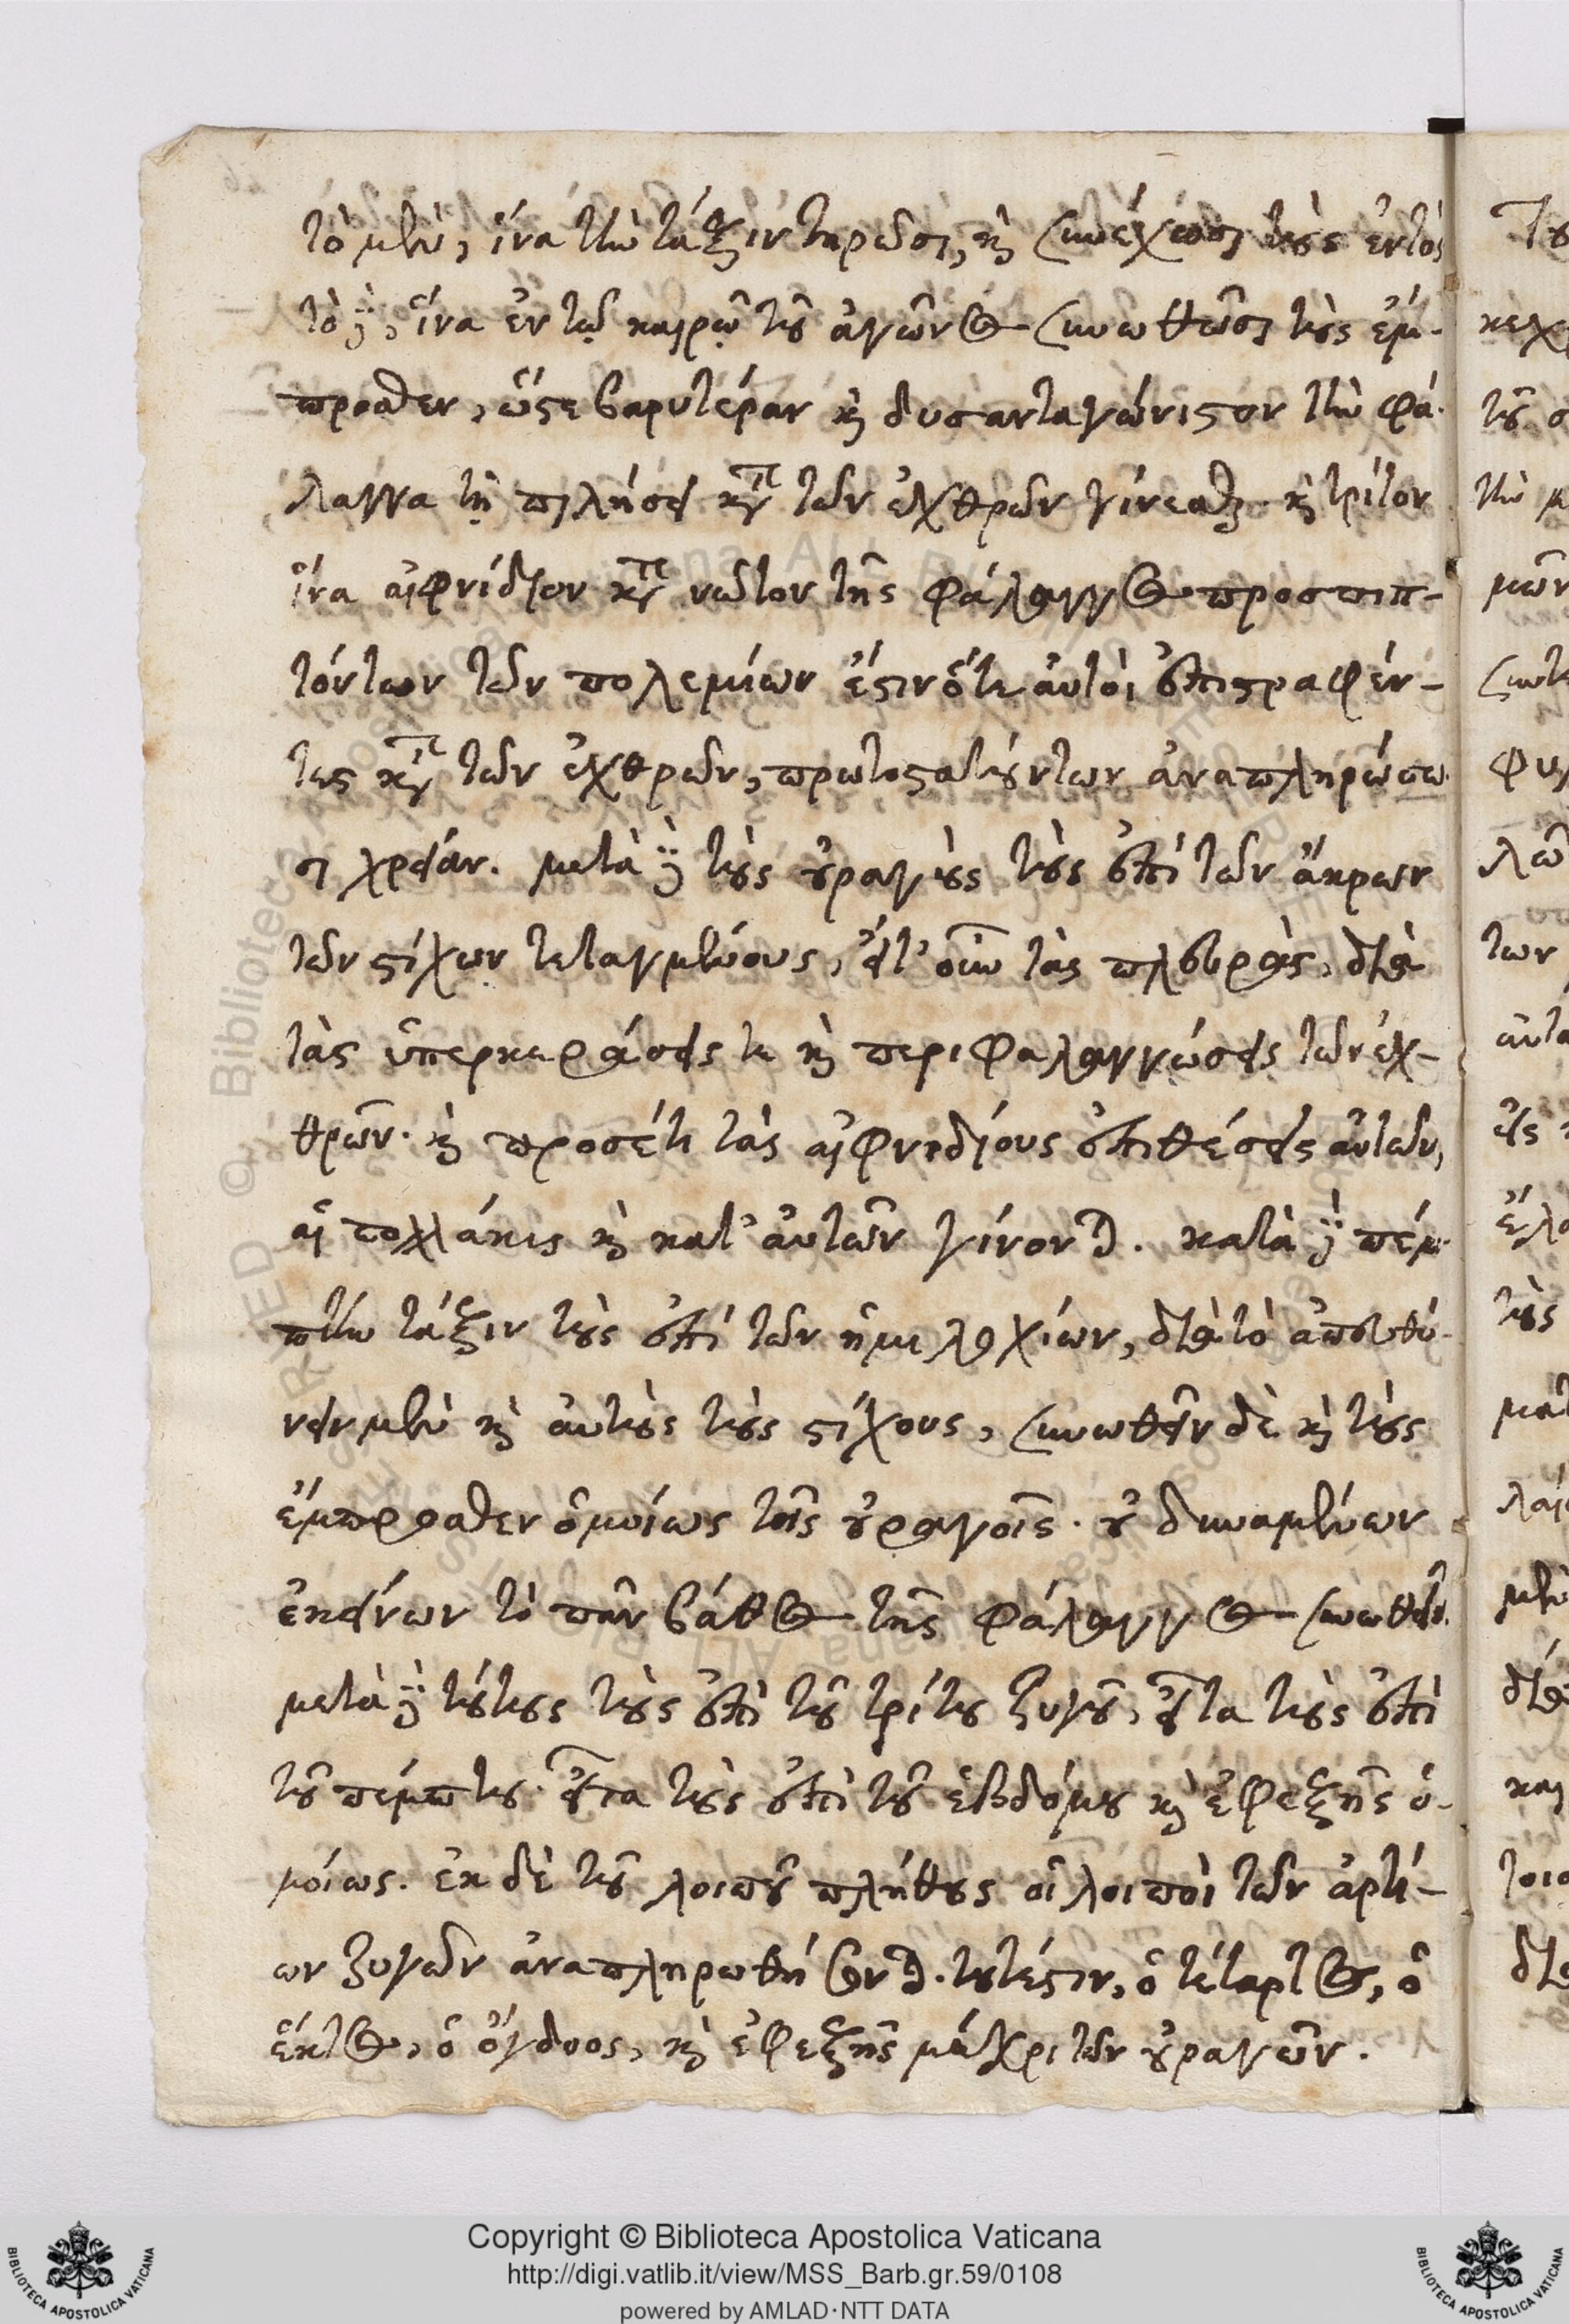 τὸ μὲν, ἵνα τὴν τάξιν τηρῶσι, καὶ συνέχωσι τοὺς ἐντὸς
τὸ δὲ, ἵνα ἐν τῷ καιρῷ τοῦ ἀγῶνος συνωθῶσι τοὺς ἔμ-
προσθεν, ὥστε βαρυτέραν καὶ δυσανταγώνιστον τὴν φά-
λαγγα τῇ πιλήσει κατὰ τῶν ἐχθρῶν γίνεσθαι. καὶ τρίτον
ἵνα αἰφνίδιον κατὰ νῶτον τῆς φάλαγγος προσπιπ-
τόντων τῶν πολεμίων ἔστιν ὅτε αὐτοὶ ἐπιστραφέν-
τες κατὰ τῶν ἐχθρῶν, πρωτοστατούντων ἀναπληρώσω-
σι χρείαν. μετὰ δὲ τοὺς οὐραγοὺς τοὺς ἐπὶ τῶν ἄκρων
τῶν στίχων τεταγμένους, εἶτ' οὖν τὰς πλευρὰς, διὰ
τὰς ὑπερκεράσεις τε καὶ περιφαλαγγώσεις τῶν ἐχ-
θρῶν. καὶ προσέτι τὰς αἰφνιδίους ἐπιθέσεις αὐτῶν,
αἳ πολλάκις καὶ κατ' αὐτῶν γίνονται. κατὰ δὲ πέμ-
πτην τάξιν τοὺς ἐπὶ τῶν ἡμιλοχίων, διὰ τὸ ἀπευθύ-
νειν μὲν καὶ αὐτοὺς τοὺς στίχους, συνωθεῖν δὲ καὶ τοὺς
ἔμπροσθεν ὁμοίως τοῖς οὐραγοῖς. οὐ δυναμένων
ἐκείνων τὸ πᾶν βάθος τῆς φάλαγγος συνωθεῖν.
μετὰ δὲ τούτους τοὺς ἐπὶ τοῦ τρίτου ζυγοῦ, εἶτα τοὺς ἐπὶ
τοῦ πέμπτου. εἶτα τοὺς ἐπὶ τοῦ ἑβδόμου καὶ ἐφεξῆς ὁ-
μοίως. ἐκ δὲ τοῦ λοιποῦ πλήθους οἱ λοιποὶ τῶν ἀρτί-
ων ζυγῶν ἀναπληρωθήσονται. τουτέστιν, ὁ τέταρτος, ὁ
ἕκτος, ὁ ὄγδοος, καὶ ἐφεξῆς μέχρι τῶν οὐραγῶν.
Copyright © Biblioteca Apostolica Vaticana
http://digi.vatlib.it/view/MSS_Barb.gr.59/0108
powered by AMLAD·NTT DATA